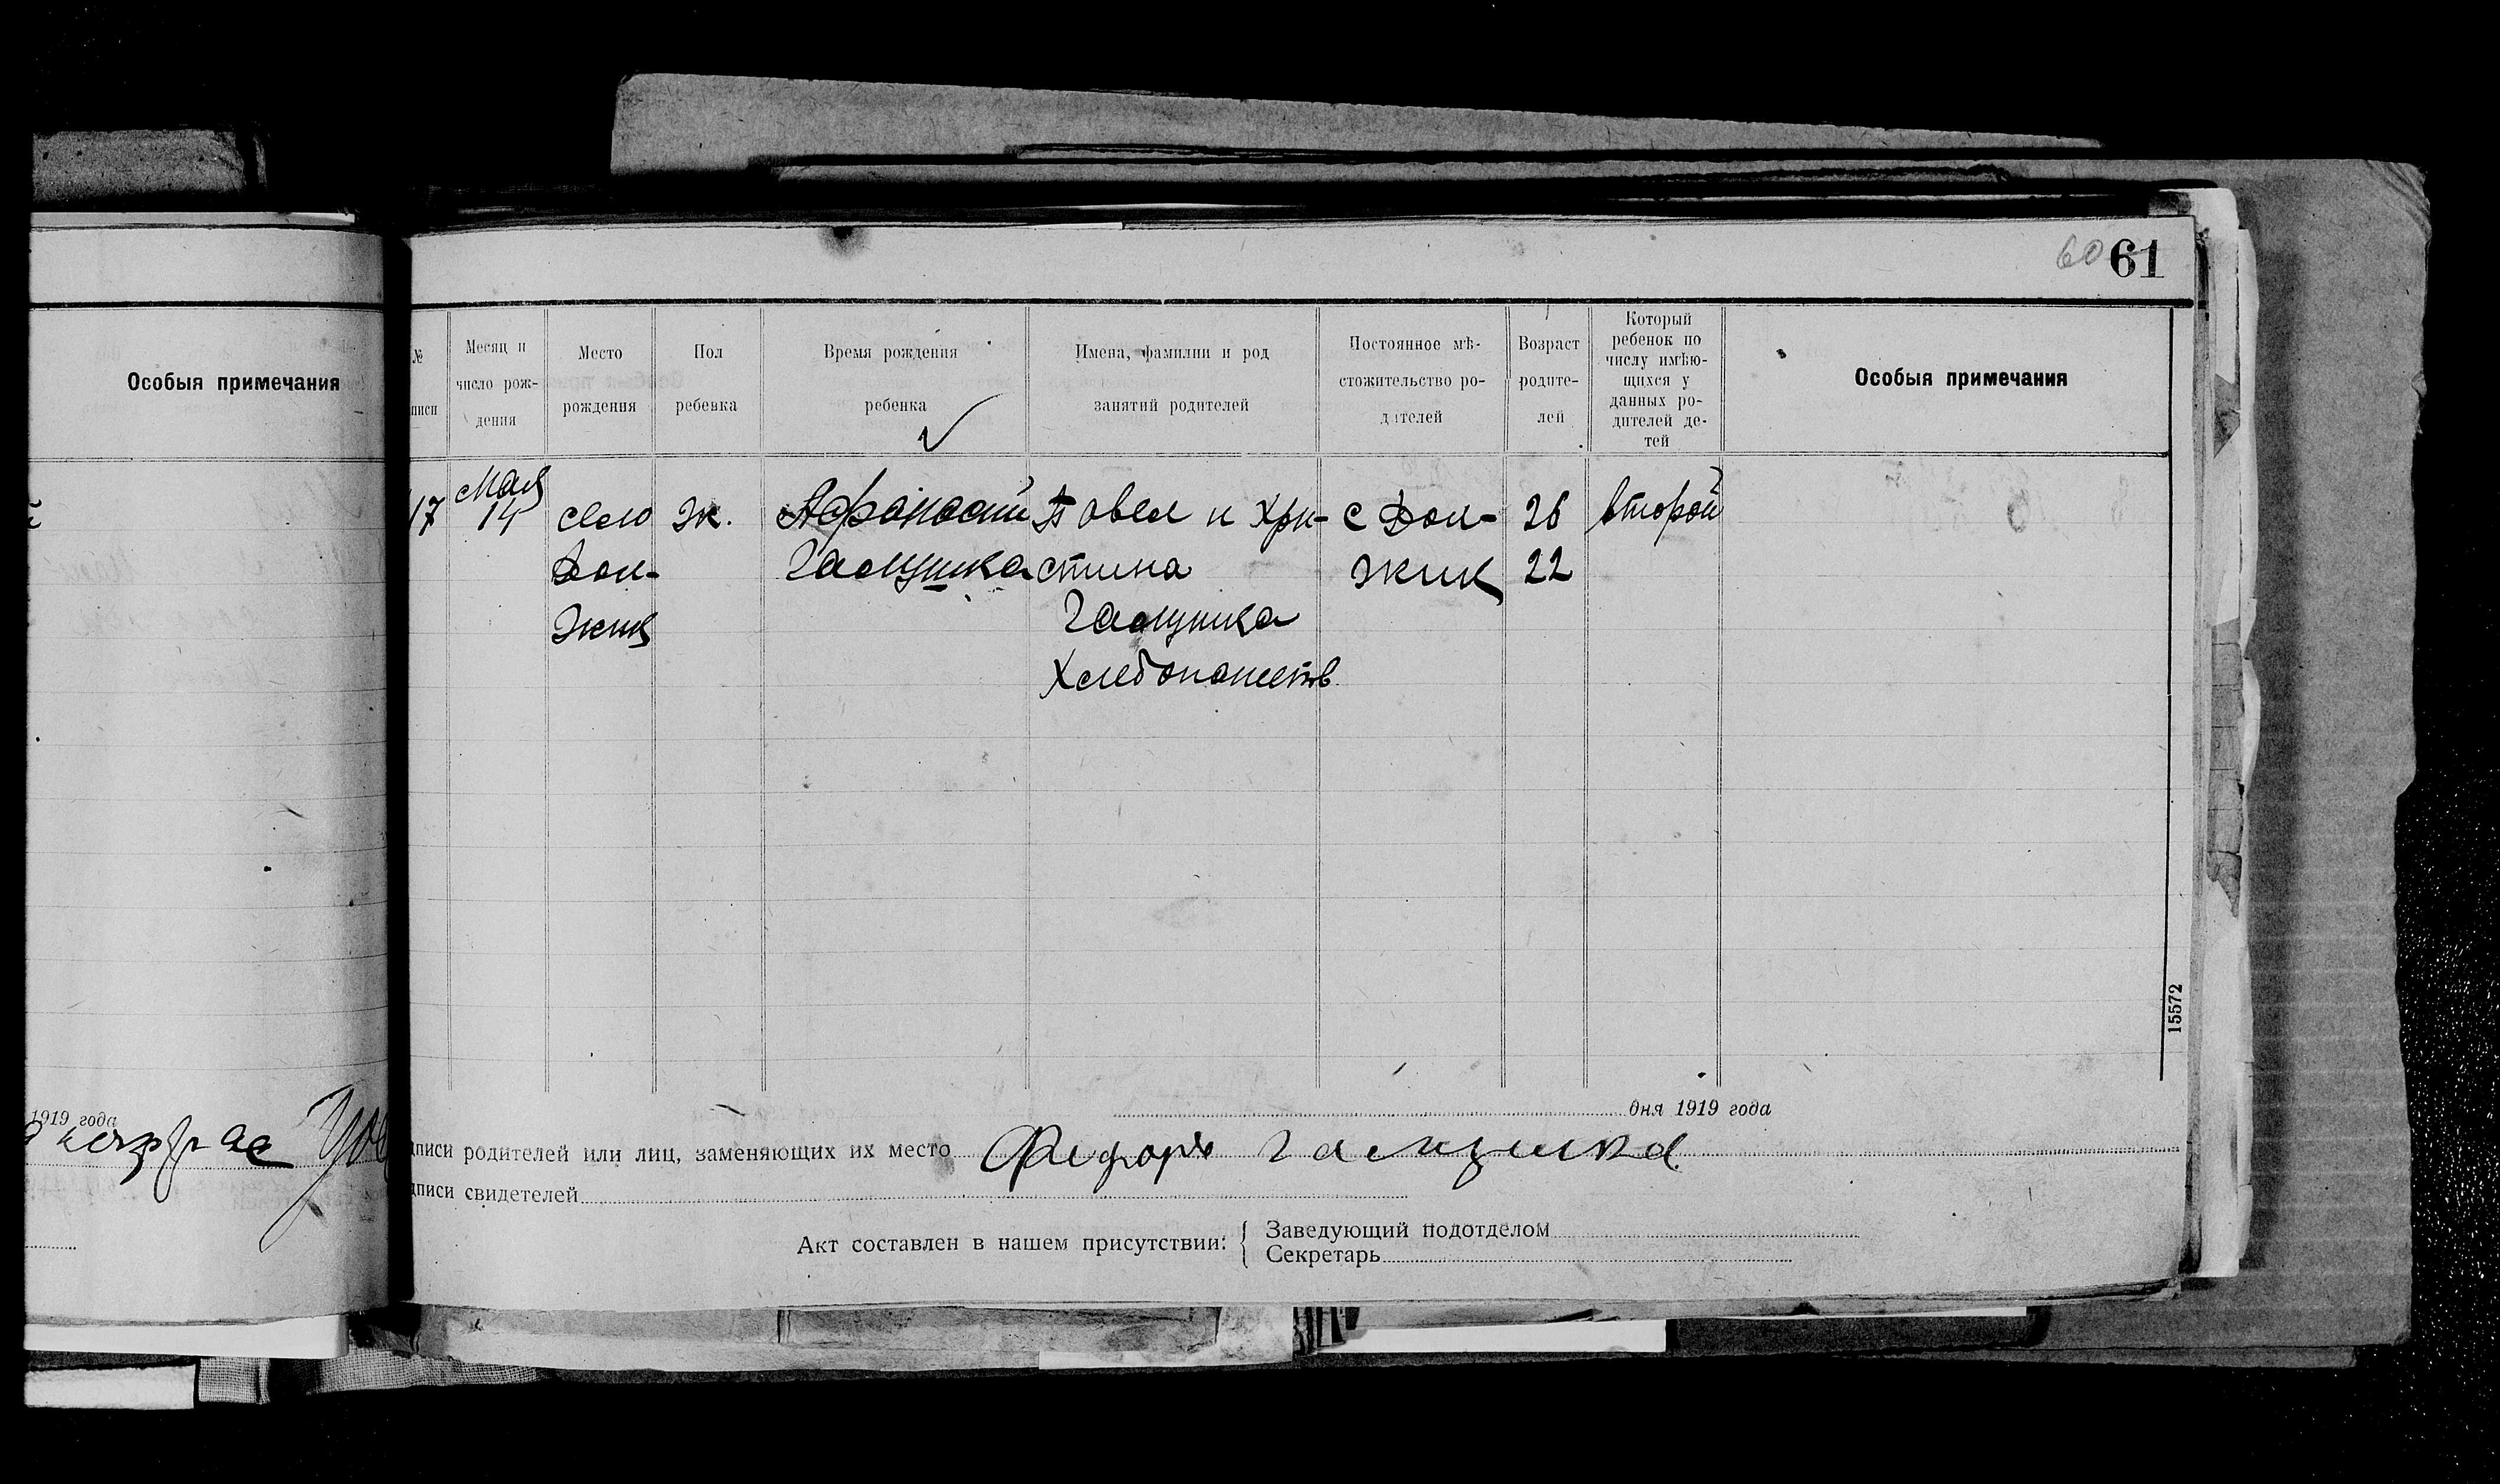 60 61
Особыя примечания
№
писи
Месяц и
число рож-
дения
Место
рождения
Пол
ребенка
Время рождения
ребенка
Имена, фамилии и род
занятий родителей
Постоянное мѣ-
стожительство ро-
дителей
Возраст
родите-
лей
Который
ребенок по
числу имѣю-
щихся у
данных ро-
дителей де-
тей
Особыя примечания
17
Мая
14
село
Дол-
жик
Ж.
Афанасий
Галушка
Павел и Хри-
стина
Галушка
Хлебопашеств.
с Дол-
жик
26
22
второй
15572
1919 года
дня 1919 года
дписи родителей или лиц, заменяющих их место Федоръ Галушка
дписи свидетелей
Акт составлен в нашем присутствии:
Заведующий подотделом
Секретарь